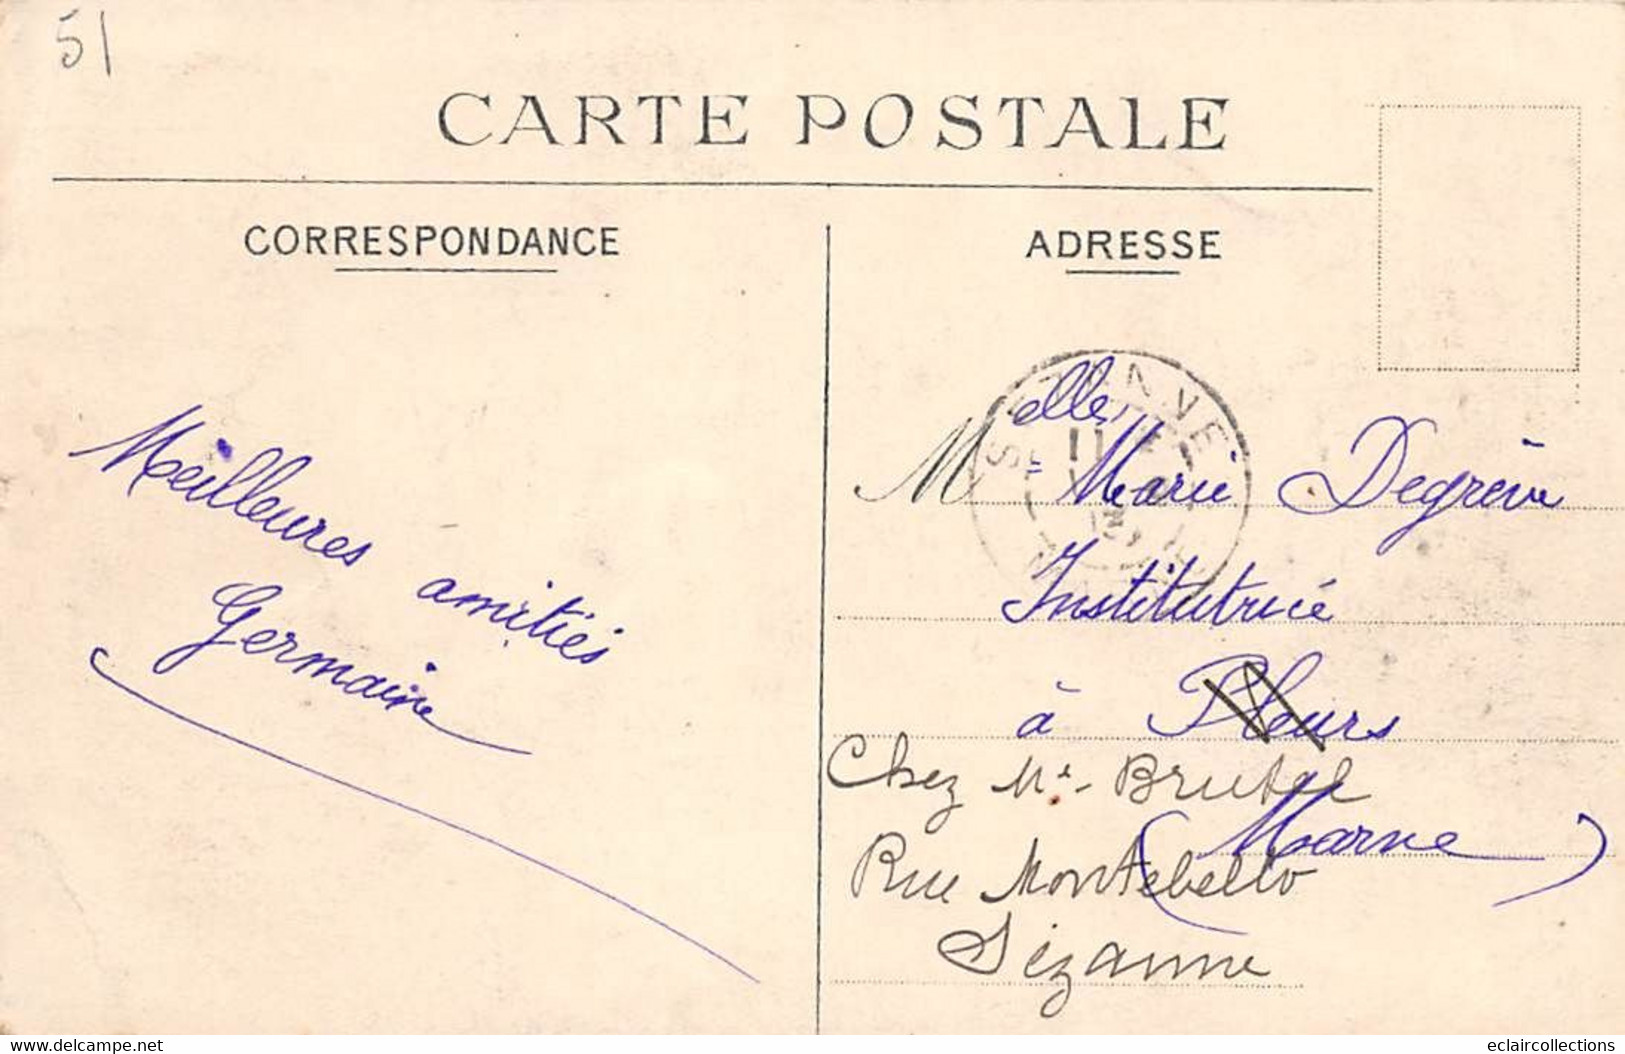 51
CARTE POSTALE
CORRESPONDANCE
Meilleures amitiés
Germaine
ADRESSE
Melle Marie Degrève
Institutrice
à Pleurs
(Marne)
Chez Me Brutel
Rue Montebello
Sézanne
SÉZANNE
11
www.delcampe.net
eclaircollections